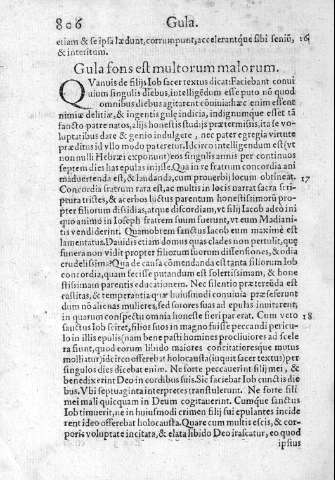 806 Gula.
etiam & se ipsa lædunt, corrumpunt, accelerantque sibi seniũ, 16
& interitum.
Gula fons est multorum malorum.
QVanuis de filijs Iob sacer textus dicat: Faciebant conui
uium singulis diebus, intelligẽdum esse puto nõ quod
omnibus diebus agitarent cõuiuia: hæc enim essent
nimiæ delitiæ, & ingentis gulę indicia, indignumque esset tã
sancto patre natos, alijs honestis studijs prætermissis, ita se vo-
luptatibus dare & genio indulgere, nec pater egregia virtute
præditus id vllo modo pateretur. Idcirco intelligendum est (vt
non nulli Hebræi exponunt) eos singulis annis per continuos
septem dies has epulas inisse. Qua in re fratrum concordia ani
maduertenda est, & laudanda, cum prouerbij locum obtineat, 17
Concordia fratrum rara est, ac multis in locis narrat sacra scri-
ptura tristes, & acerbos luctus parentum honestissimorũ pro-
pter filiorum dissidias, atque discordiam, vt filij Iacob adeò ini
quo animo in Ioseph fratrem suum fuerunt, vt eum Madiani-
tis vendiderint. Quamobrem sanctus Iacob eum maximè est
lamentatus. Dauidis etiam domus quas clades non pertulit, quę
funera non vidit propter filiorum suorum dissensiones, & odia
crudelissima? Qua de causa cõmendanda est tanta filiorum Iob
concordia, quam fecisse putandum est solertissimam, & hone
stissimam parentis educationem. Nec silentio prætereũda est
castitas, & temperantia quæ huiusmodi conuiuia præseferunt
dum nõ alienas mulieres, sed sorores suas ad epulas inuitarent,
in quarum conspectu omnia honeste fieri par erat. Cum vero 18
sanctus Iob sciret, filios suos in magno fuisse peccandi pericu-
lo in illis epulis (nam bene pasti homines procliuiores ad scele
ra sunt, quod eorum libido maiores concitationesque motus
molliatur) idcirco offerebat holocausta (inquit sacer textus) per
singulos dies dicebat enim. Ne forte peccauerint filij mei, &
benedixerint Deo in cordibus suis. Sic faciebat Iob cunctis die
bus. Vbi septuaginta interpretes transtulerunt. Ne forte filij
mei mali quicquam in Deum cogitauerint. Cumque sanctus
Iob timuerit, ne in huiusmodi crimen filij sui epulantes incide
rent ideo offerebat holocausta. Quare cum multis escis, & cor-
poris voluptate incitata, & elata libido Deo irascatur, eo quod
ipsius